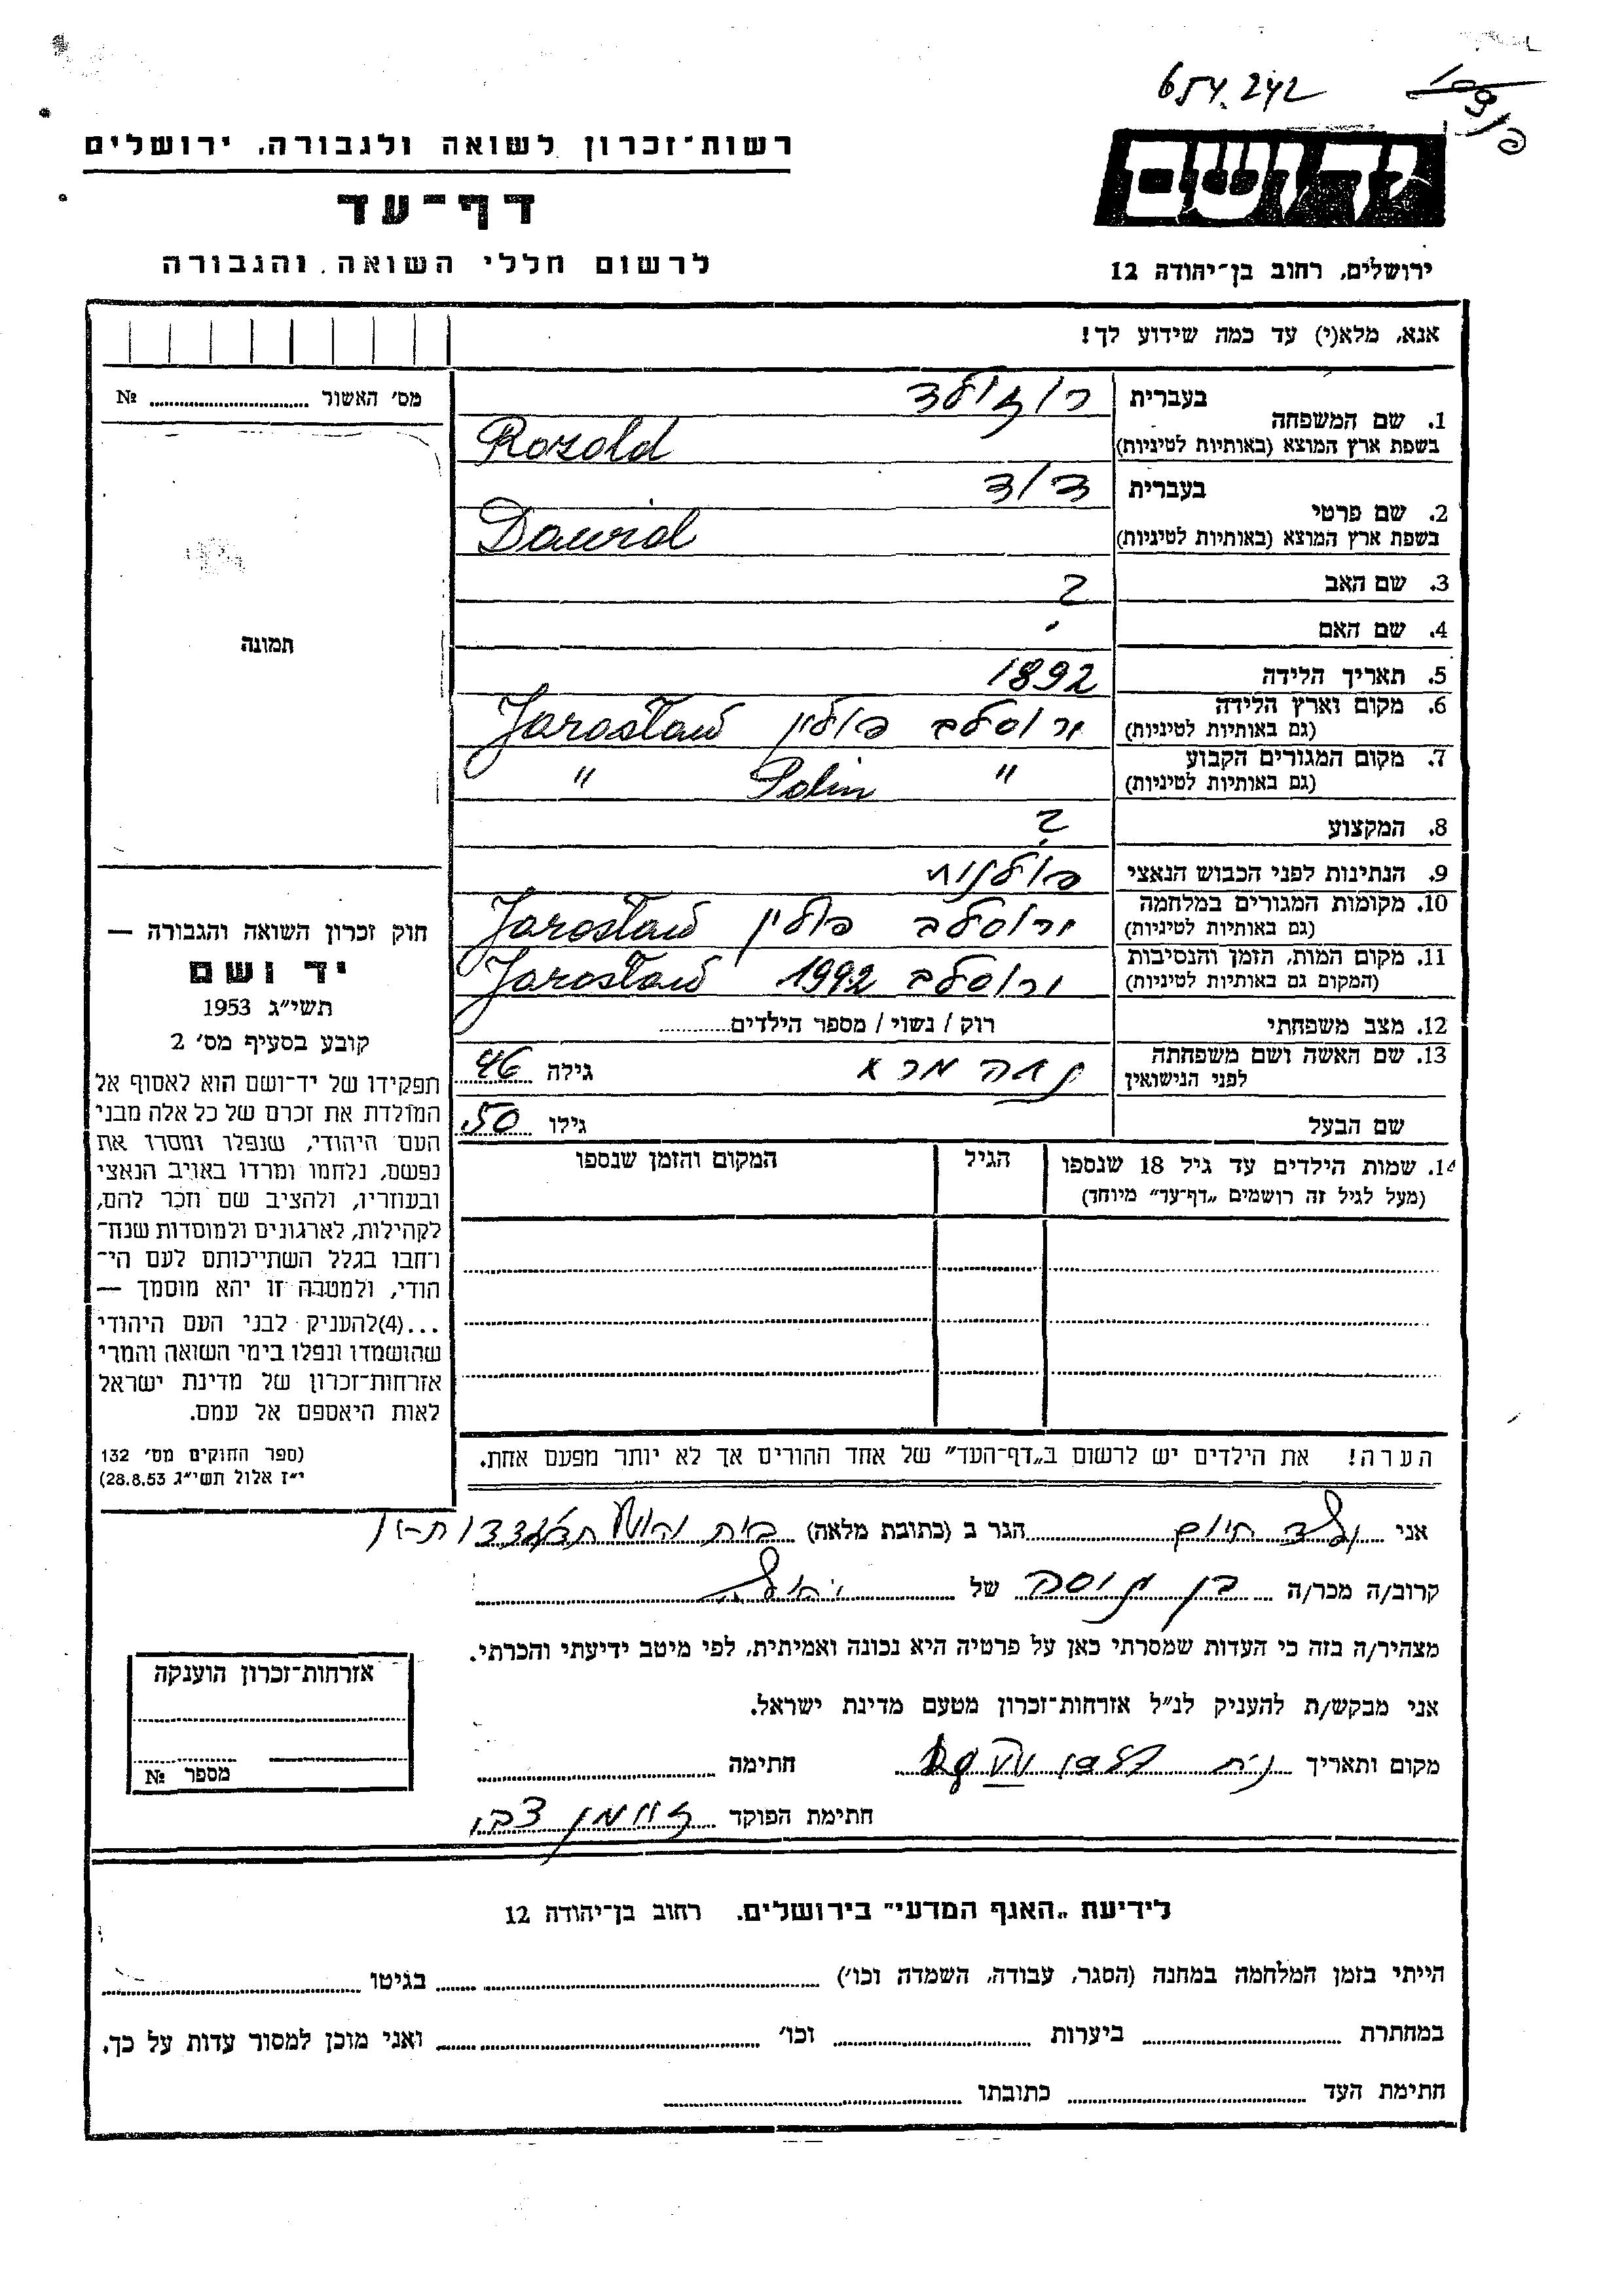 654.242
רשות־זכרון לשואה ולגבורה, ירושלים
יד ושם
דף־עד
לרשום חללי השואה והגבורה
ירושלים, רחוב בן־יהודה 12
אנא, מלא(י) עד כמה שידוע לך!
מס׳ האשור № ........
1. שם המשפחה בעברית רוזולד
בשפת ארץ המוצא (באותיות לטיניות) Rozold
2. שם פרטי בעברית דוד
בשפת ארץ המוצא (באותיות לטיניות) Dawid
3. שם האב ?
4. שם האם
5. תאריך הלידה 1892
6. מקום וארץ הלידה (גם באותיות לטיניות) ירוסלב פולין Jarosław
7. מקום המגורים הקבוע (גם באותיות לטיניות) " Polin "
8. המקצוע ?
9. הנתינות לפני הכבוש הנאצי פולנית
10. מקומות המגורים במלחמה (גם באותיות לטיניות) ירוסלב פולין Jarosław
11. מקום המות, הזמן והנסיבות (המקום גם באותיות לטיניות) ירוסלב 1992 Jarosław
12. מצב משפחתי רוק / נשוי / מספר הילדים........
13. שם האשה ושם משפחתה לפני הנישואין גילה 46
שם הבעל גילו 50
14. שמות הילדים עד גיל 18 שנספו הגיל המקום והזמן שנספו
(מעל לגיל זה רושמים „דף־עד" מיוחד)
הערה! את הילדים יש לרשום ב„דף־העד" של אחד ההורים אך לא יותר מפעם אחת.
תמונה
חוק זכרון השואה והגבורה —
יד ושם
תשי״ג 1953
קובע בסעיף מס׳ 2
תפקידו של יד־ושם הוא לאסוף אל
המולדת את זכרם של כל אלה מבני
העם היהודי, שנפלו ומסרו את
נפשם, נלחמו ומרדו באויב הנאצי
ובעוזריו, ולהציב שם וזכר להם,
לקהילות, לארגונים ולמוסדות שנח־
רבו בגלל השתייכותם לעם הי־
הודי, ולמטרה זו יהא מוסמך —
...(4)להעניק לבני העם היהודי
שהושמדו ונפלו בימי השואה והמרי
אזרחות־זכרון של מדינת ישראל
לאות היאספם אל עמם.
(ספר החוקים מס׳ 132
י״ז אלול תשי״ג 28.8.53)
אני חיים הגר ב (כתובת מלאה) בית
קרוב/ה מכר/ה בן של
מצהיר/ה בזה כי העדות שמסרתי כאן על פרטיה היא נכונה ואמיתית, לפי מיטב ידיעתי והכרתי.
אני מבקש/ת להעניק לנ״ל אזרחות־זכרון מטעם מדינת ישראל.
מקום ותאריך חתימה
חתימת הפוקד
אזרחות־זכרון הוענקה
מספר №
לידיעת „האגף המדעי" בירושלים, רחוב בן־יהודה 12
הייתי בזמן המלחמה במחנה (הסגר, עבודה, השמדה וכו׳) ........ בגיטו ........
במחתרת ........ ביערות ........ וכו׳ ........ ואני מוכן למסור עדות על כך.
חתימת העד ........ כתובתו ........